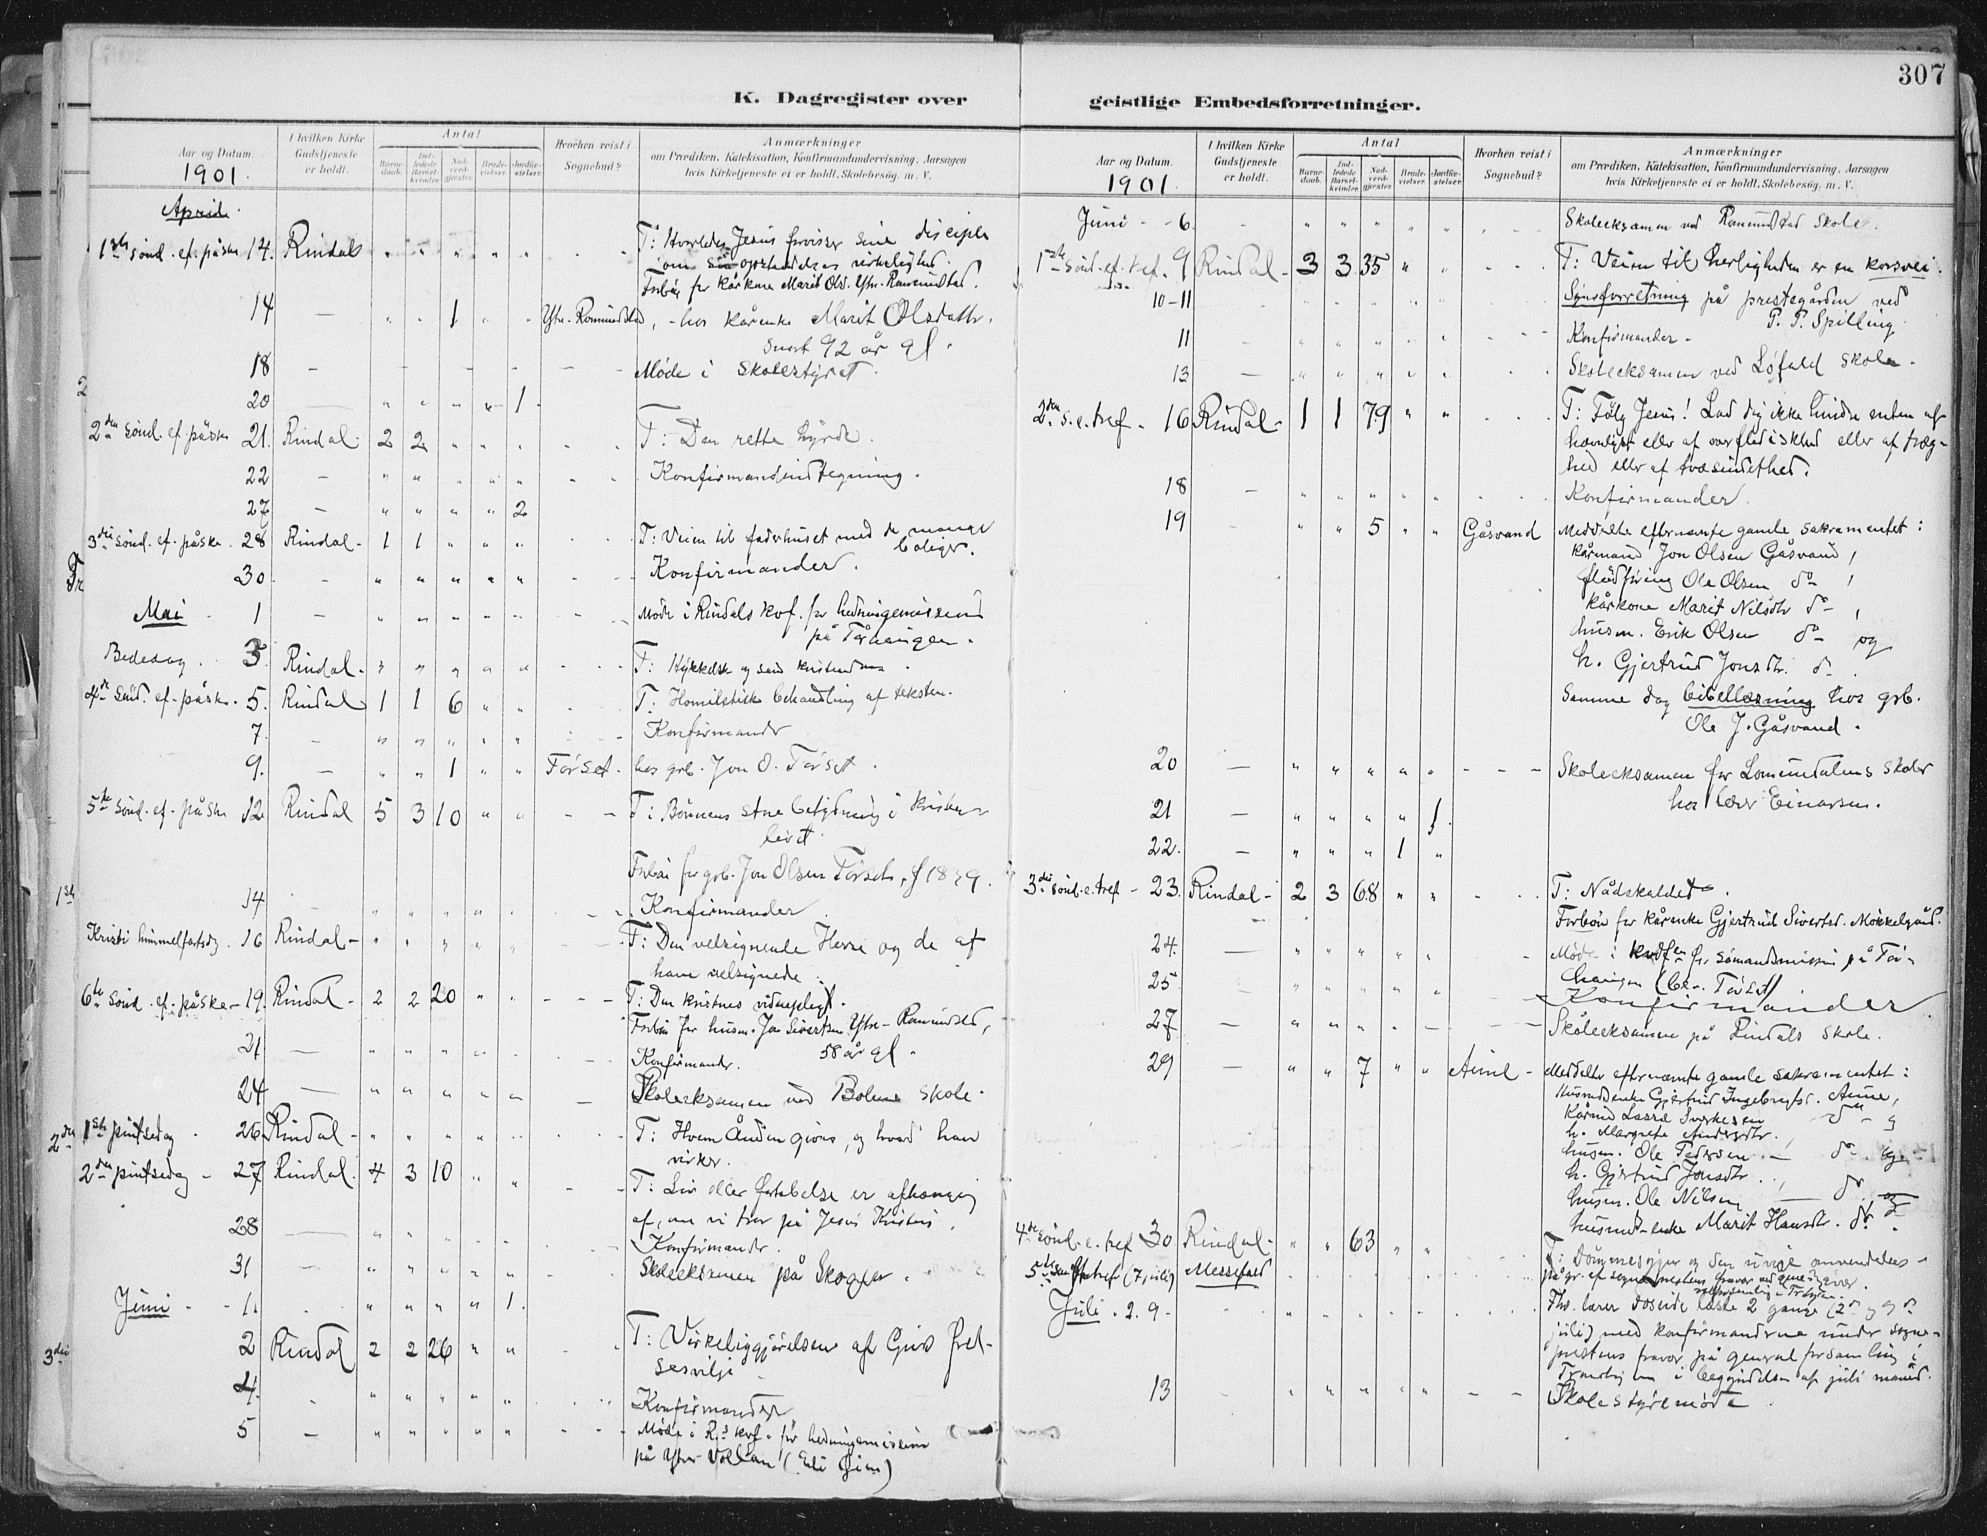 307
K. Dagregister over geistlige Embedsforretninger.
Aar og Datum. 1901.
I hvilken Kirke Gudstjeneste er holdt.
Antal
Barnedaab.
Indledede Barselkvinder.
Nadverdgjester.
Brudevielser.
Jordfæstelser.
Hvorhen reist i Sognebud?
Anmærkninger
om Prædiken, Katekisation, Konfirmandundervisning, Aarsagen
hvis Kirketjeneste ei er holdt, Skolebesøg, m. V.
April.
1ste sönd. ef. påske 14. Rindal " " " " " T: Hvorledes Jesus forvisser sine disciple
om sin opstandelses virkelighed.
Forbön for kårkone Marit Olsd. Ytre-Romundstad.
14 — " " 1 " " Ytre-Romundstad, - hos kårenke Marit Olsdattr.
snart 92 år gl.
18 — Möde i Skolestyret.
20 — " " " " 1
2den sönd. ef. påske 21. Rindal 2 2 " " " T: Den rette hyrde.
22 — " " " " " Konfirmandindtegning.
27 — " " " " 2
3die sönd. ef. påske 28 Rindal 1 1 " " " T: Veien til faderhuset med de mange
boliger.
30 — " " " " " Konfirmander.
Mai 1 — " " " " " Möde i Rindals kvf. for hedningemissionen
på Tårhaugen.
Bededag. 3. Rindal " " " " " T: og sand kristendom.
4de sönd. ef. påske. 5. Rindal 1 1 6 " " T: Homiletisk behandling af teksten.
7. — " " " " " Konfirmander
9. — " " 1 " " Törset. hos grb. Jon O. Törset.
5te sönd. ef. påske 12 Rindal 5 3 10 " " T: Bönnens store betydning i kristen-
livet.
Forbön for grb. Jon Olsen Törset, f 1829.
14 " " " " " Konfirmander
Kristi himmelfartsdag. 16 Rindal " " " " " T: Den velsignende Herre og de af
ham velsignede.
6te sönd. ef. påske 19. Rindal 2 2 20 " " T: Den kristnes vidnepligt.
Forbön for husm. Jon Sivertsen Ytre-Romundstad,
58 år gl.
21 — " " " " " Konfirmander.
24 — " " " " " Skoleeksamen ved Bolme skole.
1ste pintsedag. 26. Rindal " " " " " T: Hvem Ånden gives, og hvad han
virker.
2den pintsedag 27 Rindal. 4 3 10 " " T: Liv eller fortabelse er afhængig
af, om vi tror på Jesus Kristus.
28 — " " " " " Konfirmander.
31 — " " " " " Skoleeksamen på Skogen.
Juni 1. " " " " 1.
2 Rindal 2 2 26 " " T: Virkeliggjörelsen af Guds frel-
sesvilje
4. " " " " " Konfirmander
5 — " " " " " Möde i R.s kvf. for hedningemissionen
på Ytre Vollan
K. Dagregister over geistlige Embedsforretninger.
Aar og Datum. 1901.
I hvilken Kirke Gudstjeneste er holdt.
Antal
Barnedaab.
Indledede Barselkvinder.
Nadverdgjester.
Brudevielser.
Jordfæstelser.
Hvorhen reist i Sognebud?
Anmærkninger
om Prædiken, Katekisation, Konfirmandundervisning, Aarsagen
hvis Kirketjeneste ei er holdt, Skolebesøg, m. V.
Juni 6 " " " " " Skoleeksamen ved Romundstad Skole.
1ste sönd. ef. tref. 9 Rindal 3 3 35 " " T: Veien til herligheden er en korsvei.
10-11 Synsforretning på prestegården ved
P. P. Spilling.
11 — " " " " " Konfirmander.
13 — " " " " " Skoleeksamen ved Löfald skole.
2den s. e. tref. 16 Rindal 1 1 79 " " T: Fölg Jesus! Lad dig ikke hindre enten af
eller af eller af træg-
hed eller af tvesindethed.
18 — " " " " " Konfirmander.
19 " " 5 " " Gåsvand Meddelte efternævnte gamle sakramentet:
kårmand Jon Olsen Gåsvand,
flådföring Ole Olsen do,
kårkone Marit Nilsdtr do,
husm. Erik Olsen do og
h. Gjertrud Jonsdtr. do.
Samme dag bibellæsning hos grb.
Ole J. Gåsvand.
20 — " " " " " Skoleeksamen for Lomundalens skoler
hos lærer Einarsen.
21 — " " " " 1
22. — " " " 1 "
3die sönd. e. tref 23. Rindal 2 3 68 " " T: Nådskaldet.
Forbön for kårenke Gjertrud Sivertsd. Mokkelgård.
24. — " " " " " Möde i kvdf. for sömandsmission på Tör-
haugen
25 — " " " " " Konfirmander
27 — " " " " " Skoleeksamen på Rindals skole.
29 — " " 7 " " Aune Meddelte efternævnte gamle sakramentet:
Husmdsenke Gjertrud Ingebrigtsd. Aune,
Kårmd Lasse Sivertsen do og
h. Margrete Andersdtr.,
husm. Ole Pedersen do og
h. Gjertrud Jonsdtr. do
husm. Ole Nilsen do og
husmd-enke Marit Hansdtr. do.
4de sönd. e. tref 30 Rindal " " 63 " " T: Dömmesyger og den
5te tref (7 juli) Messefald på gr. af sogneprestens fravær ved gene-
ralforsamling
Juli. 2. 9. Fhv. lærer læste 2 gange (2 og 9
juli) med konfirmanderne under sogne-
prestens fravær på generalforsamling i
i begyndelsen af juli måned.
13 " " " " " Skolestyremöde.